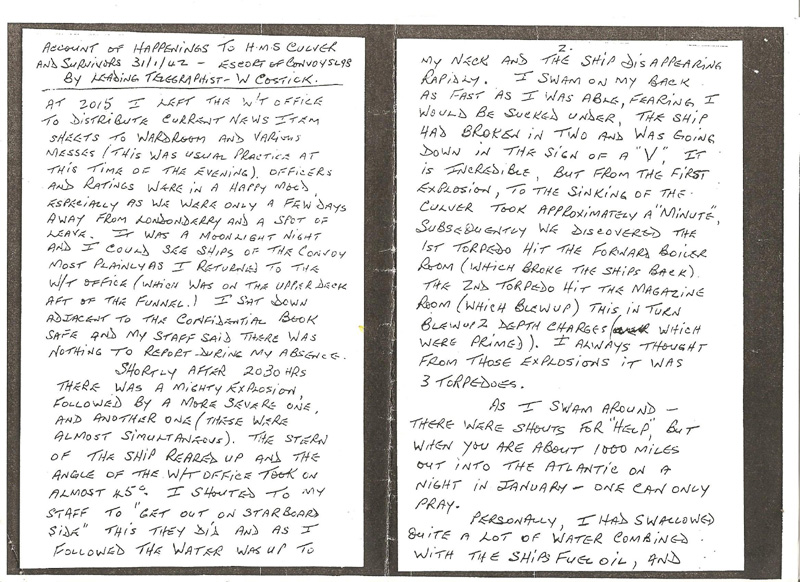 ACCOUNT OF HAPPENINGS TO H.M.S CULVER
AND SURVIVORS 31/1/42 - ESCORT OF CONVOY SL98
BY LEADING TELEGRAPHIST - W COSTICK.
AT 2015 I LEFT THE W/T OFFICE
TO DISTRIBUTE CURRENT NEWS ITEM
SHEETS TO WARDROOM AND VARIOUS
MESSES (THIS WAS USUAL PRACTICE AT
THIS TIME OF THE EVENING). OFFICERS
AND RATINGS WERE IN A HAPPY MOOD,
ESPECIALLY AS WE WERE ONLY A FEW DAYS
AWAY FROM LONDONDERRY AND A SPOT OF
LEAVE. IT WAS A MOONLIGHT NIGHT
AND I COULD SEE SHIPS OF THE CONVOY
MOST PLAINLY AS I RETURNED TO THE
W/T OFFICE (WHICH WAS ON THE UPPER DECK
AFT OF THE FUNNEL.) I SAT DOWN
ADJACENT TO THE CONFIDENTIAL BOOK
SAFE AND MY STAFF SAID THERE WAS
NOTHING TO REPORT DURING MY ABSENCE.
SHORTLY AFTER 2030 HRS
THERE WAS A MIGHTY EXPLOSION,
FOLLOWED BY A MORE SEVERE ONE,
AND ANOTHER ONE (THESE WERE
ALMOST SIMULTANEOUS). THE STERN
OF THE SHIP REARED UP AND THE
ANGLE OF THE W/T OFFICE TOOK ON
ALMOST 45°. I SHOUTED TO MY
STAFF TO "GET OUT ON STARBOARD
SIDE" THIS THEY DID AND AS I
FOLLOWED THE WATER WAS UP TO
2.
MY NECK AND THE SHIP DISAPPEARING
RAPIDLY. I SWAM ON MY BACK
AS FAST AS I WAS ABLE, FEARING, I
WOULD BE SUCKED UNDER, THE SHIP
HAD BROKEN IN TWO AND WAS GOING
DOWN IN THE SIGN OF A "V", IT
IS INCREDIBLE, BUT FROM THE FIRST
EXPLOSION, TO THE SINKING OF THE
CULVER TOOK APPROXIMATELY A "MINUTE",
SUBSEQUENTLY WE DISCOVERED THE
1ST TORPEDO HIT THE FORWARD BOILER
ROOM (WHICH BROKE THE SHIPS BACK).
THE 2ND TORPEDO HIT THE MAGAZINE
ROOM (WHICH BLEWUP) THIS IN TURN
BLEWUP 2 DEPTH CHARGES ( WHICH
WERE PRIMED). I ALWAYS THOUGHT
FROM THOSE EXPLOSIONS IT WAS
3 TORPEDOES.
AS I SWAM AROUND -
THERE WERE SHOUTS FOR "HELP", BUT
WHEN YOU ARE ABOUT 1000 MILES
OUT INTO THE ATLANTIC ON A
NIGHT IN JANUARY - ONE CAN ONLY
PRAY.
PERSONALLY, I HAD SWALLOWED
QUITE A LOT OF WATER COMBINED
WITH THE SHIPS FUEL OIL, AND